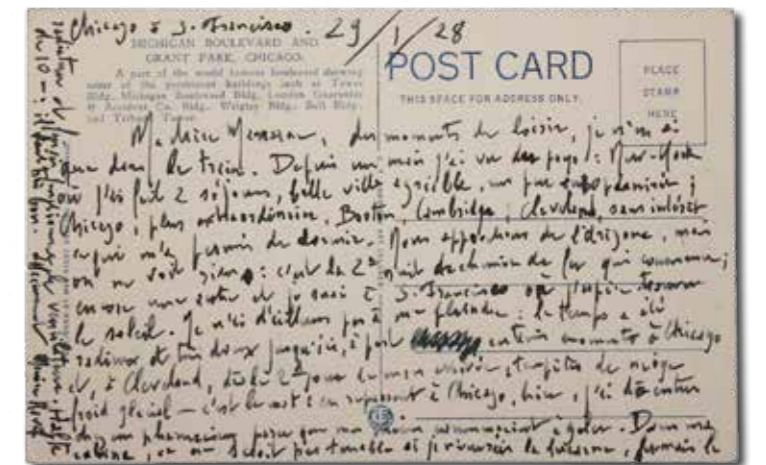 Chicago à S. Francisco. 29/1/28
MICHIGAN BOULEVARD AND
GRANT PARK, CHICAGO.
A part of the world famous boulevard showing
some of the prominent buildings such as Tower
Bldg., Michigan Boulevard Bldg., London Guarantee
& Accident Co. Bldg., Wrigley Bldg., Bell Bldg.,
and Tribune Tower.
POST CARD
THIS SPACE FOR ADDRESS ONLY.
PLACE
STAMP
HERE
Ma chère des moments de loisir, je n'en ai
que dans le train. Depuis un mois j'ai vu des pays : New-York
où j'ai fait 2 séjours, belle ville agréable, un peu européanisée ;
Chicago, plus extraordinaire, Boston, Cambridge, Cleveland, sans intérêt
ce qui m'a permis de dormir. Nous approchons de l'Arizona, mais
on ne voit rien : c'est la 2e nuit de chemin de fer qui commence ;
encore une autre et je serai à S. Francisco où j'espère trouver
le soleil. Je n'ai d'ailleurs pas à me plaindre : le temps a été
radieux et très doux jusqu'ici, à part certains moments à Chicago
et, à Cleveland, dès le 2e jour de mon arrivée, tempête de neige
froid glacial – c'est en repassant à Chicago, hier, j'ai dû entrer
chez un pharmacien parce que commençaient à geler. Dans ma
cabine, ce ne serait pas tenable si je n'ouvrais la lucarne, fermais le
radiateur et ventilateur. Halte
de 10 : il fait très bon.